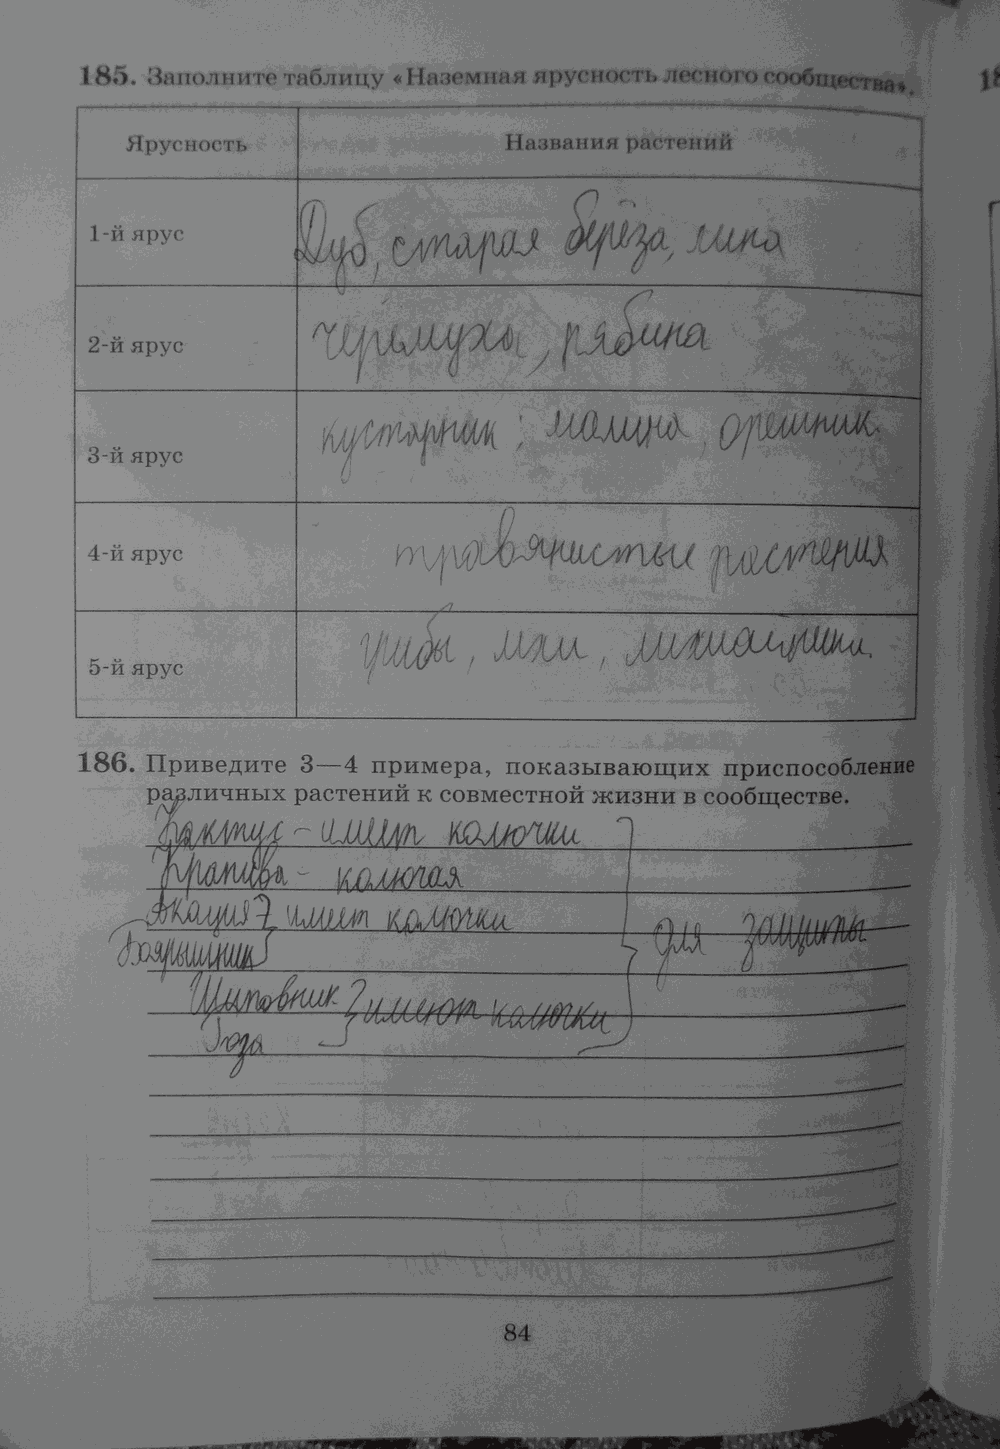 185. Заполните таблицу «Наземная ярусность лесного сообщества».
Ярусность Названия растений
1-й ярус Дуб, старая берёза, липа
2-й ярус черёмуха, рябина
3-й ярус кустарник: малина, орешник.
4-й ярус травянистые растения
5-й ярус грибы, мхи,
186. Приведите 3—4 примера, показывающих приспособление
различных растений к совместной жизни в сообществе.
Кактус - имеет колючки
Крапива - колючая
Акация имеет колючки
для защиты
Боярышник
Шиповник имеют колючки
Роза
84